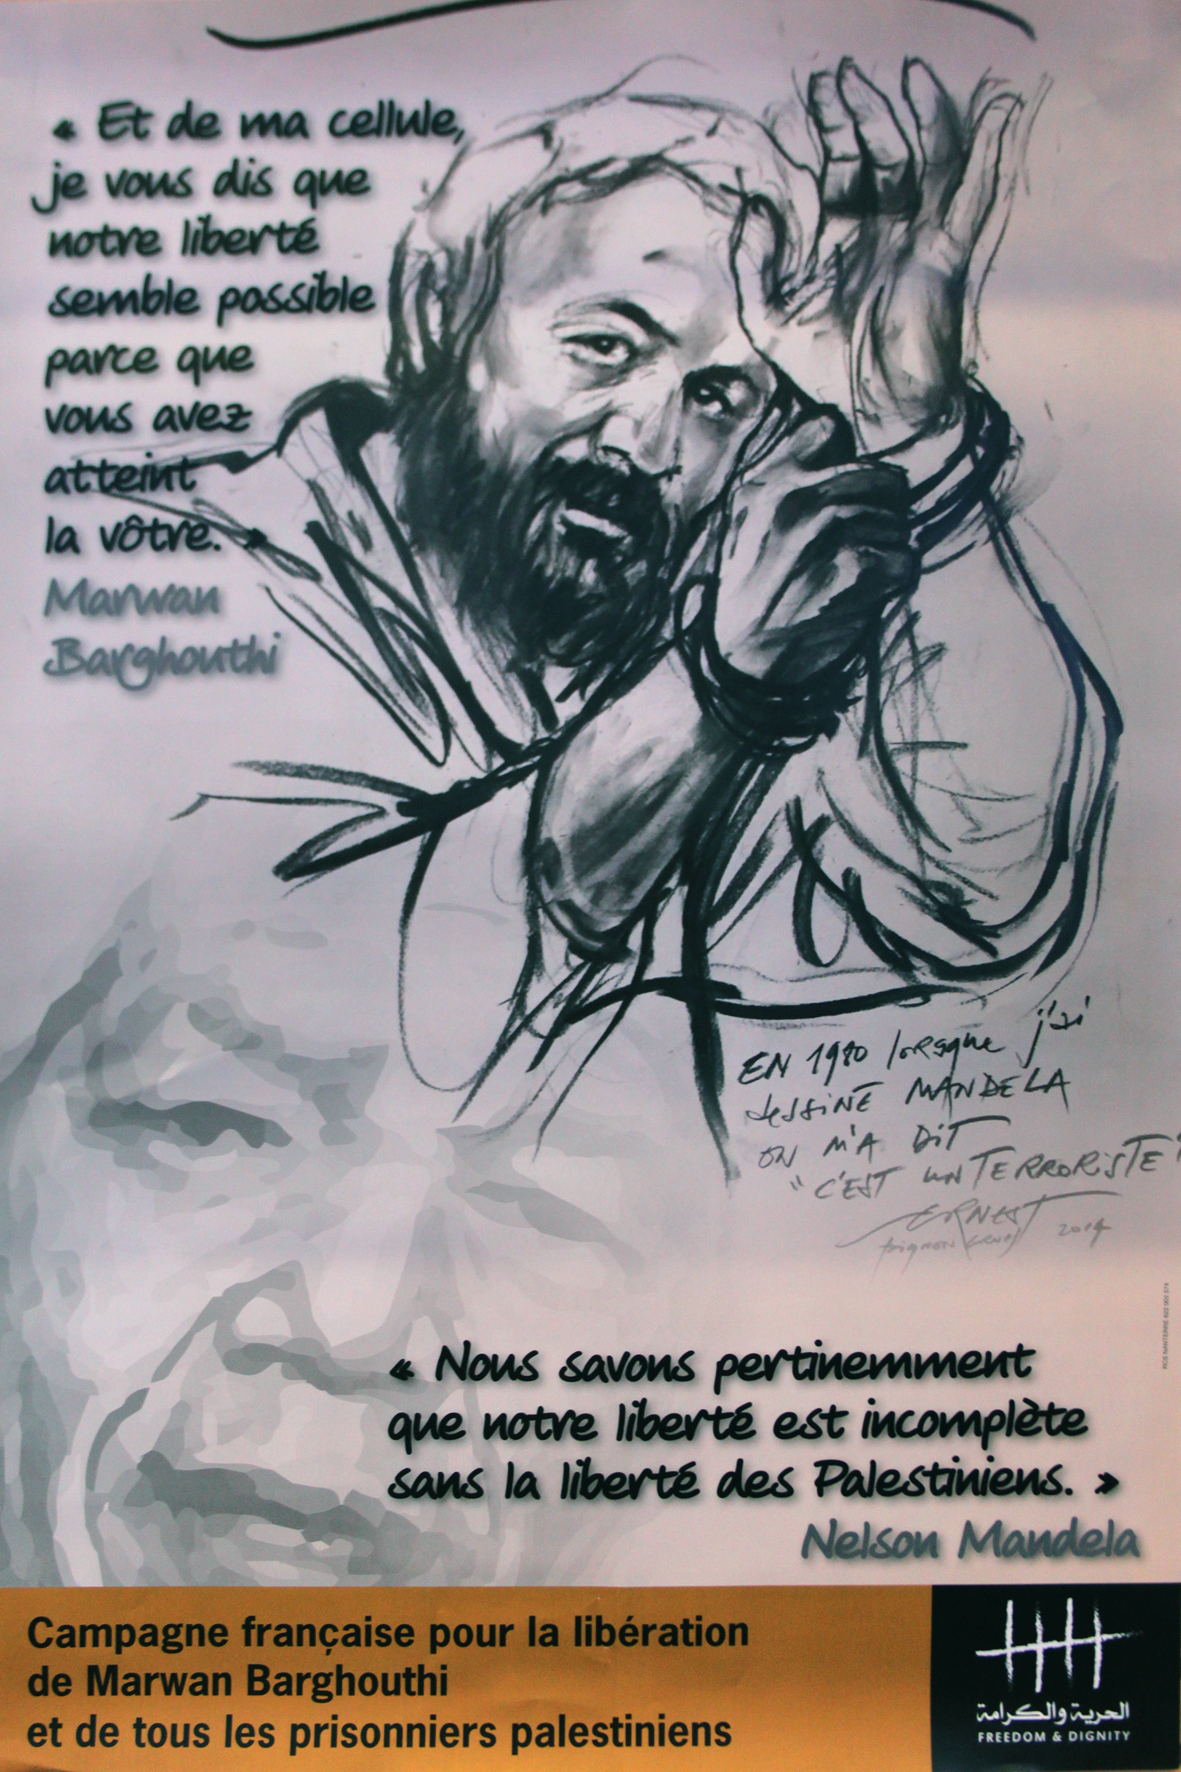 « Et de ma cellule,
je vous dis que
notre liberté
semble possible
parce que
vous avez
atteint
la vôtre. »
Marwan
Barghouthi
EN 1980 lorsque j'ai
dessiné MANDELA
ON M'A DIT
"C'EST UN TERRORISTE"
ERNEST
Pignon Ernest 2014
« Nous savons pertinemment
que notre liberté est incomplète
sans la liberté des Palestiniens. »
Nelson Mandela
Campagne française pour la libération
de Marwan Barghouthi
et de tous les prisonniers palestiniens
الحرية والكرامة
FREEDOM & DIGNITY